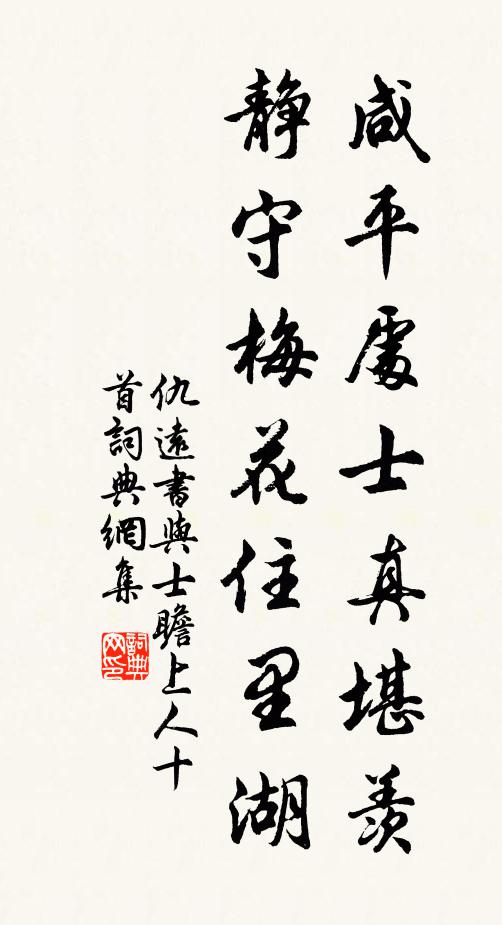 咸平處士真堪羨
靜守梅花住里湖
仇遠書與士瞻上人十
首詞典網集
詞典网印